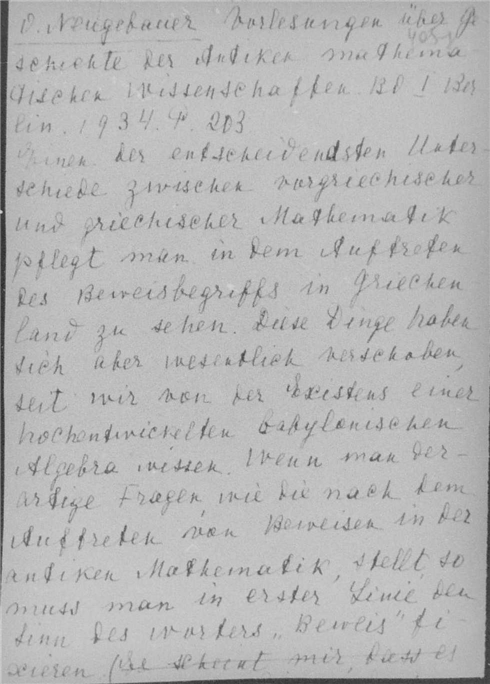 O. Neugebauer Vorlesungen über Ge-
schichte der Antiken mathema-
tischen Wissenschaften. Bd I Ber
lin. 1934. P. 203
Einen der entscheidendsten Unter-
schiede zwischen vorgriechischer
und griechischer Mathematik
pflegt man in dem Auftreten
des Beweisbegriffs in Griechen
land zu sehen. Diese Dinge haben
sich aber wesentlich verschoben,
seit wir von der Existens einer
hochentwickelten babylonischen
Algebra wissen. Wenn man der-
artige Fragen, wie die nach dem
Auftreten von Beweisen in der
antiken Mathematik, stellt, so
muss man in erster Linie den
Sinn des Wortes „Beweis" fi-
xieren (Es scheint mir, dass es